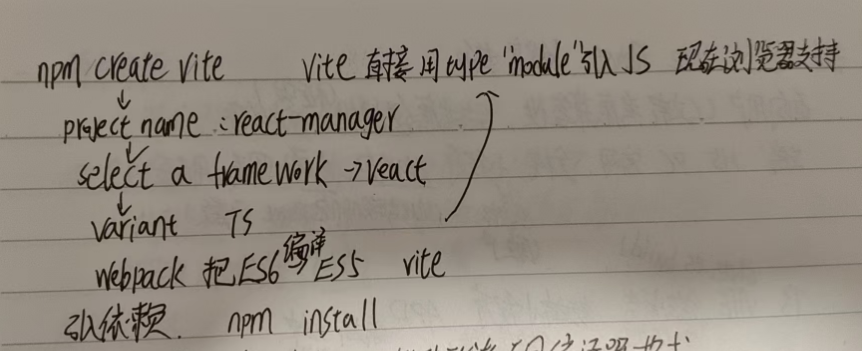 npm create vite vite 直接用type "module"引入JS 现在浏览器支持
↓
project name : react-manager
↓
select a framework → react
↓
variant TS
webpack 把ES6编译ES5 vite
引入依赖. npm install